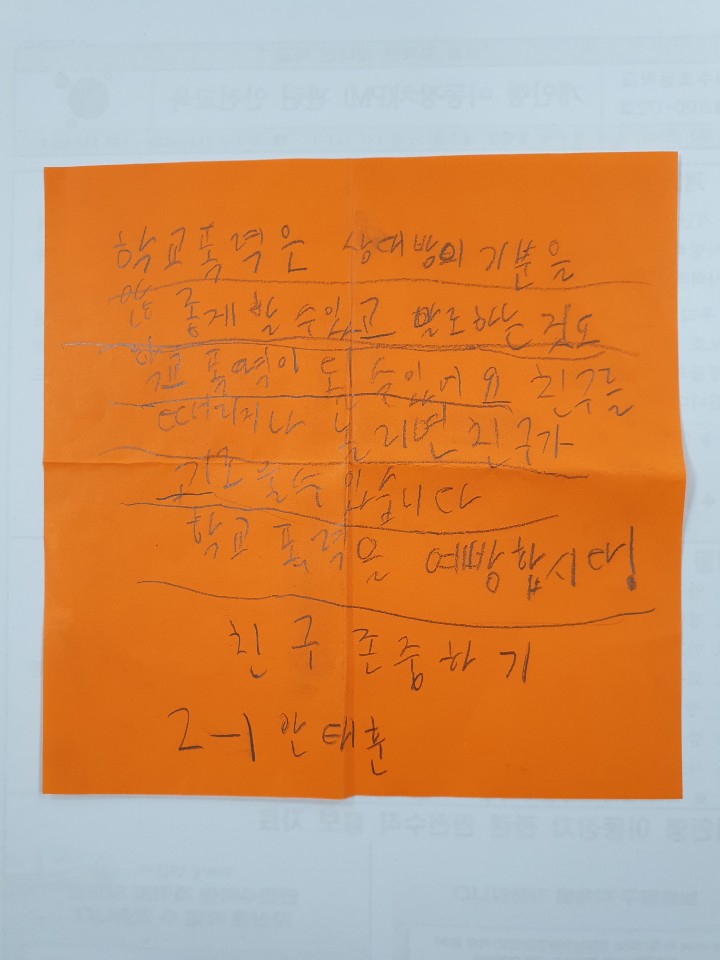 학교폭력은 상대방의 기분을
안 좋게 할 수 있고 말로하는 것도
학교폭력이 될 수 있어요 친구를
때리거나 놀리면 친구가
울수 있습니다
학교폭력을 예방합시다!
친구 존중하기
2-1 안태훈